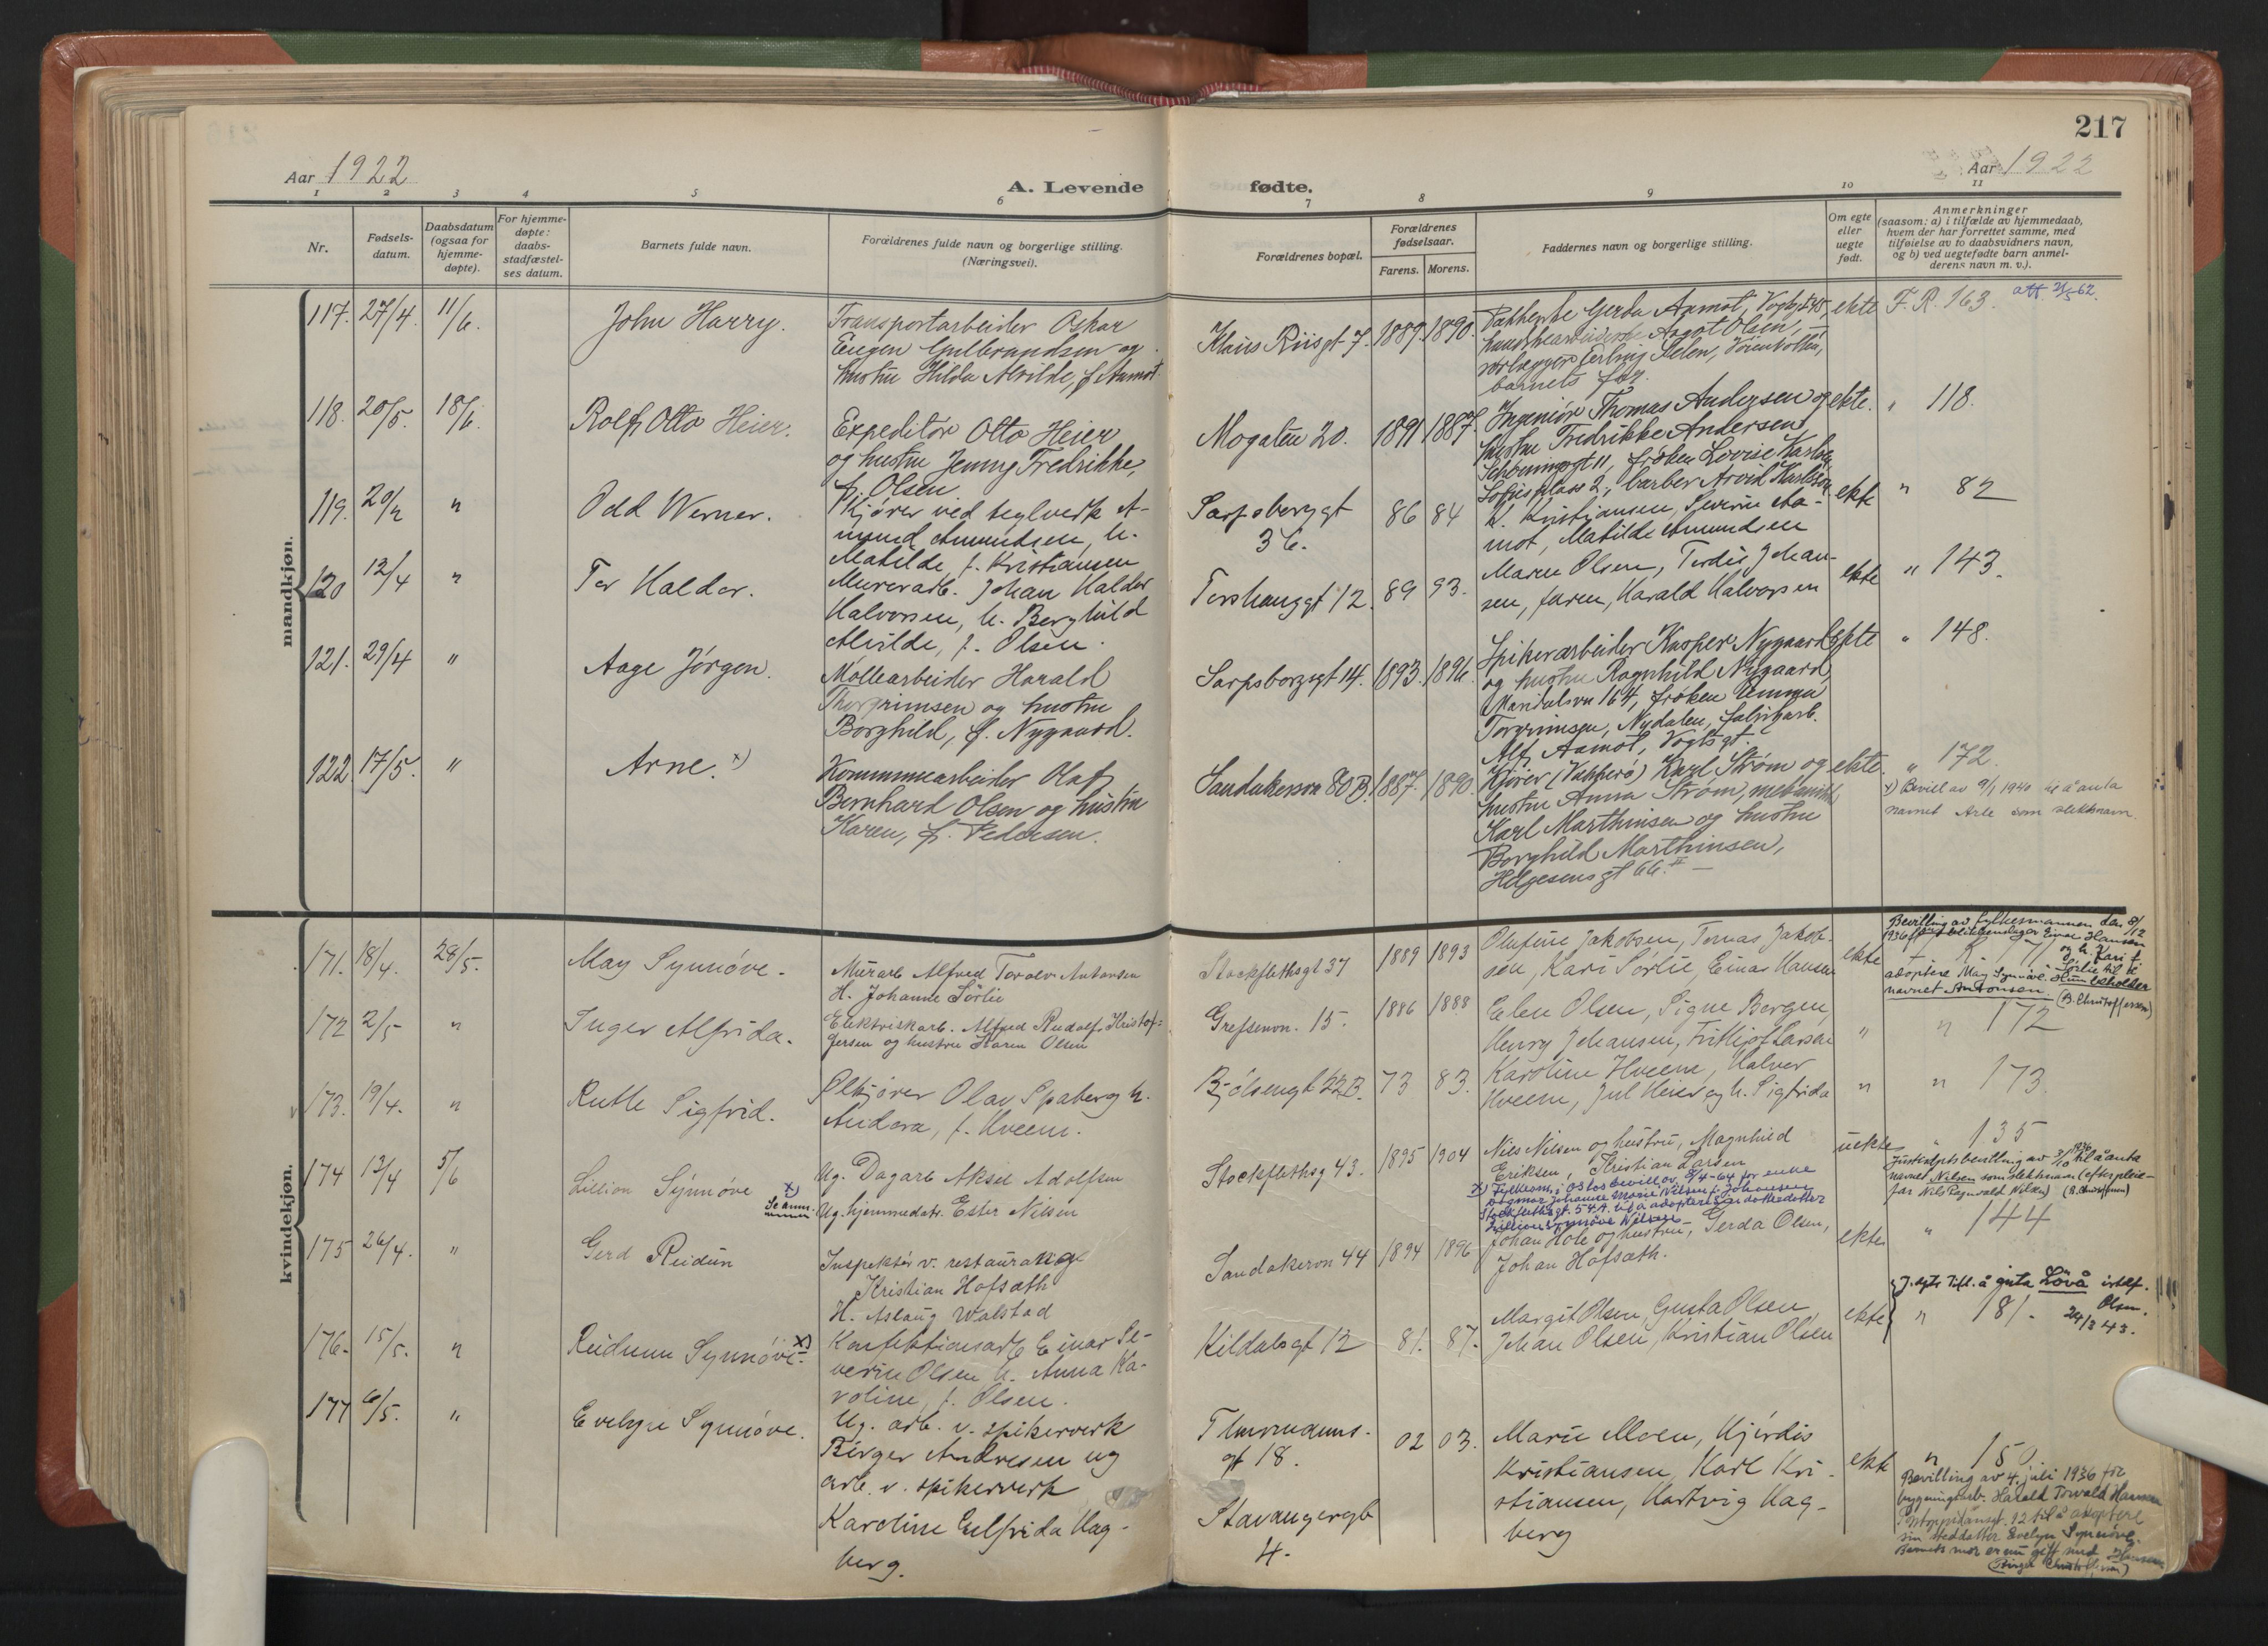 217
Aar 1922
A. Levende fødte.
Aar 1922
1 2 3 4 5 6 7 8 9 10 11
Nr.
Fødsels-
datum.
Daabsdatum
(ogsaa for
hjemme-
døpte).
For hjemme-
døpte:
daabs-
stadfæstel-
ses datum.
Barnets fulde navn.
Forældrenes fulde navn og borgerlige stilling.
(Næringsvei).
Forældrenes bopæl.
Forældrenes
fødselsaar.
Farens. Morens.
Faddernes navn og borgerlige stilling.
Om egte
eller
uegte
født.
Anmerkninger
(saasom: a) i tilfælde av hjemmedaab,
hvem der har forrettet samme, med
tilføielse av to daabsvidners navn,
og b) ved uegtefødte barn anmel-
derens navn m. v.).
mandkjøn.
117. 27/4. 11/6. John Harry.
Transportarbeider Oskar
Eugen Gulbrandsen og
hustru Hilda Alvilde, f. Aamot
Klaus Riisgt 7. 1889. 1890.
Gerda Aamot, Vogtsgt 45,
Aagot Olsen,
Erling
barnets far.
ekte F. R. 163. att. 62.
118. 20/5. 18/6. Rolf Otto Heier.
Expeditør Otto Heier
og hustru Jenny Fredrikke,
f. Olsen
Mogaten 20. 1891 1887.
Ingeniør Thomas Andersen og
hustru Fredrikke Andersen,
frøken Lovise
Sofiesplass 2, barber Arvid
ekte. " 118.
119. 20/2 " Odd Werner.
Kjører ved teglverk A-
mund Amundsen, h.
Matilde, f. Kristiansen
Sarpsborggt
36.
86 84
Kristjansen, Severin Aa-
mot, Matilde Amundsen
ekte " 82
120 12/4 " Tor Haldor.
Murerarb. Johan Haldor
Halvorsen, h. Borghild
Alvilde, f. Olsen.
Torshauggt 12. 89 93.
Maren Olsen, Johan-
sen, faren, Harald Halvorsen
ekte " 143.
121. 29/4 " Aage Jørgen.
Møllearbeider Harald
Thorgrimsen og hustru
Borghild, f. Nygaard.
Sarpsborggt 14. 1893. 1896.
Spikerarbeider Kasper Nygaard
og hustru Ragnhild Nygaard,
Maridalsvn 164, frøken Emma
Torgrimsen, Nydalen, fabrikarb.
Alf Aamot, Vogtsgt.
ekte " 148.
122. 17/5. " Arne. x)
Kommunearbeider Olaf
Bernhard Olsen og hustru
Karen, f. Pedersen.
Sandakerveien 80 B. 1887. 1890.
Kjører (Vækkerø) Karl Strøm og
hustru Anna Strøm, mekaniker
Karl Marthinsen og hustru
Borghild Marthinsen,
Helgesensgt 66. II
ekte. " 172.
x) Bevill av 9/1 1940 til å anta
navnet Arle som slektsnavn.
kvindekjøn.
171. 18/4. 28/5. May Synnøve.
Murarb Alfred Antonsen
H. Johanne Sörlie
Stockflethsgt 37 1889 1893
Olufine Jakobsen, Tomas Jakob-
sen, Kari Sørlie, Einar Hansen
ekte F. R. 171
Bevilling av fylkesmannen den 8/12
1936 for Einar Hansen
og h. Kari f.
Sørlie til å
adoptere May Synnöve. Hun beholder
navnet Antonsen. (B. Christoffersen)
172 2/5 " Inger Alfrida.
Elektriskarb. Alfred Rudolf Kristof-
fersen og hustru Karen Olsen
Grefsenvn. 15. 1886 1888
Elen Olsen, Signe Bergen,
Henry Johansen, Frithjof Larsen
" " 172
173. 19/4. " Ruth Sigfrid.
Ølkjører Olav Spaberg h.
Andora, f. Hveem.
Bjølsengt 22B. 73 83.
Karoline Hveem, Halvor
Hveem, Jul Heier og h. Sigfrida
" " 173.
174 13/4 5/6 Lillian Synnöve x)
Se anm.
Ug. Dagarb Aksel Adolfsen
Ug. hjemmedatr. Ester Nilsen
Stockflethsg 43. 1895 1904
Niels Nilsen og hustru, Magnhild
Eriksen, Kristian Larsen
x) Fylkesm. i Oslos bevill av 8/4-64 for enke
Dagmar Johanne Marie Nilsen f. Johansen
Stockflethsgt. 54A. til å adoptere sin datterdatter
Lillian Synnöve Nilsen
uekte " 135
Justisdpts bevilling av 3/10 1936 til å anta
navnet Nilsen som slektsnavn (efter pleie-
far Nils Nilsen) (B. Christoffersen)
175 26/4. " Gerd Reidun
Inspektör v. restaurant
Kristian Hofsæth
H. Aslaug Walstad
Sandakervn 44 1894 1896
Johan Hole og hustru, Gerda Olsen,
Johan Hofsæth.
ekte " 144
176. 15/5. " Reidunn Synnöve. x)
Konfektionsarb Einar Se-
verin Olsen h. Anna Ka-
roline f. Olsen.
Kildalsgt 12 81. 87.
Margit Olsen, Gusta Olsen,
Johan Olsen, Kristian Olsen
ekte " 181.
J. dpts till. å anta Lövå istedf.
Olsen.
24/2 43.
177 6/5. " Evelyn Synnøve.
Ug. arb. v. spikerverk
Birger Andresen ug
arb. v. spikerverk
Karoline Elfrida Hag-
berg.
gt 18.
Stavangergt
4.
02 03.
Marie Moen, Hjørdis
Kristiansen, Karl Kri-
stiansen, Hartvig Hag-
berg
ekte " 150
Bevilling av 4. juli 1936 for
bygningsarb. Harald Torvald Hansen
12 til å adoptere
sin steddatter Evelyn Synnöve.
Barnets mor er nu gift med Hansen
(Birger Christoffersen)